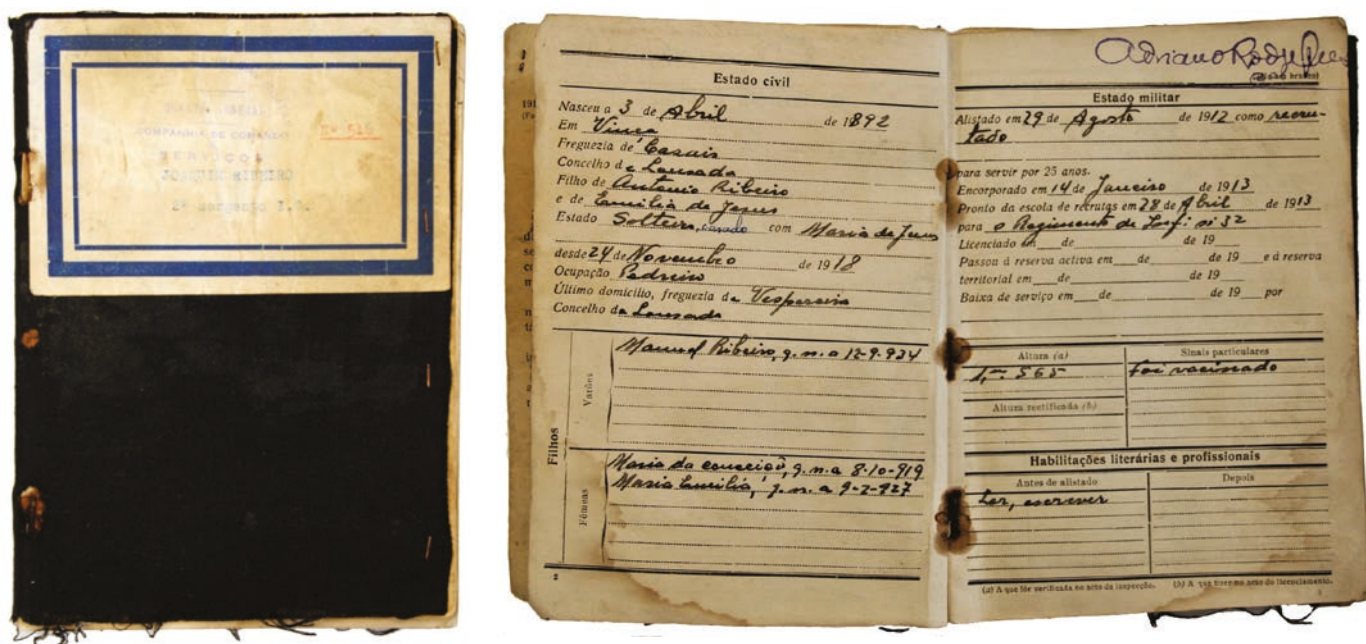 COMPANHIA DE COMANDO
Nº 516
SERVIÇOS
JOAQUIM RIBEIRO
2º sargento
Estado civil
Nasceu a 3 de Abril de 1892
Em
Freguezia de Casais
Concelho de Lousada
Filho de Antonio Ribeiro
e de Emilia de Jesus
Estado Solteiro, casado com Maria de Jesus
desde 24 de Novembro de 1918
Ocupação Pedreiro
Último domicílio, freguezia de
Concelho de Lousada
Filhos
Varões
Manuel Ribeiro, q. n. a 12-9-924
Fêmeas
Maria da conceição, q. n. a 8-10-919
Maria Emilia, q. n. a 9-2-927
2
Adriano
Estado militar
Alistado em 29 de Agosto de 1912 como recru-
tado
para servir por 25 anos.
Encorporado em 14 de Janeiro de 1913
Pronto da escola de recrutas em 28 de Abril de 1913
para o Regimento de Inf. nº 32
Licenciado em de de 19
Passou á reserva activa em de de 19 e á reserva
territorial em de de 19
Baixa de serviço em de de 19 por
Altura (a)
1,m. 565
Altura rectificada (b)
Sinais particulares
foi vacinado
Habilitações literárias e profissionais
Antes de alistado
Ler, escrever
Depois
(a) A que fôr verificada no acto da inspecção. (b) A que tiver no acto do licenciamento.